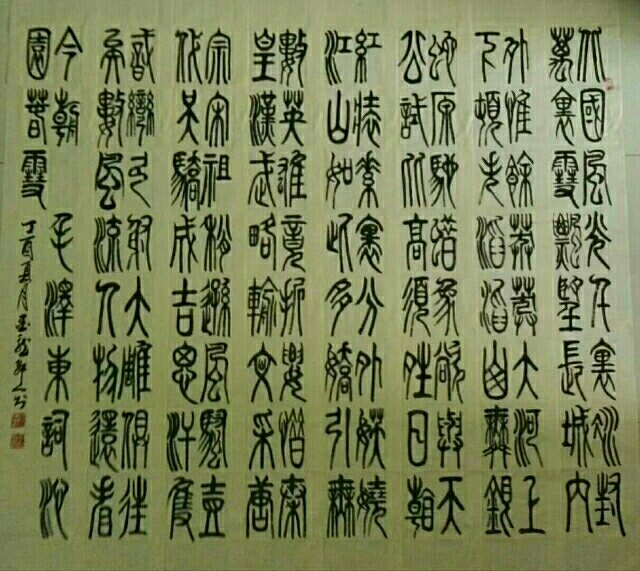 北國風光千裏冰封
萬裏雪飄望長城內
外惟餘莽莽大河上
下頓失滔滔山舞銀
蛇原馳蠟象欲與天
公試比高須晴日看
紅裝素裹分外妖嬈
江山如此多嬌引無
數英雄競折腰惜秦
皇漢武略輸文采唐
宗宋祖稍遜風騷壹
代天驕成吉思汗隻
識彎弓射大雕俱往
矣數風流人物還看
今朝 毛澤東詞沁
園春雪
丁酉夏月